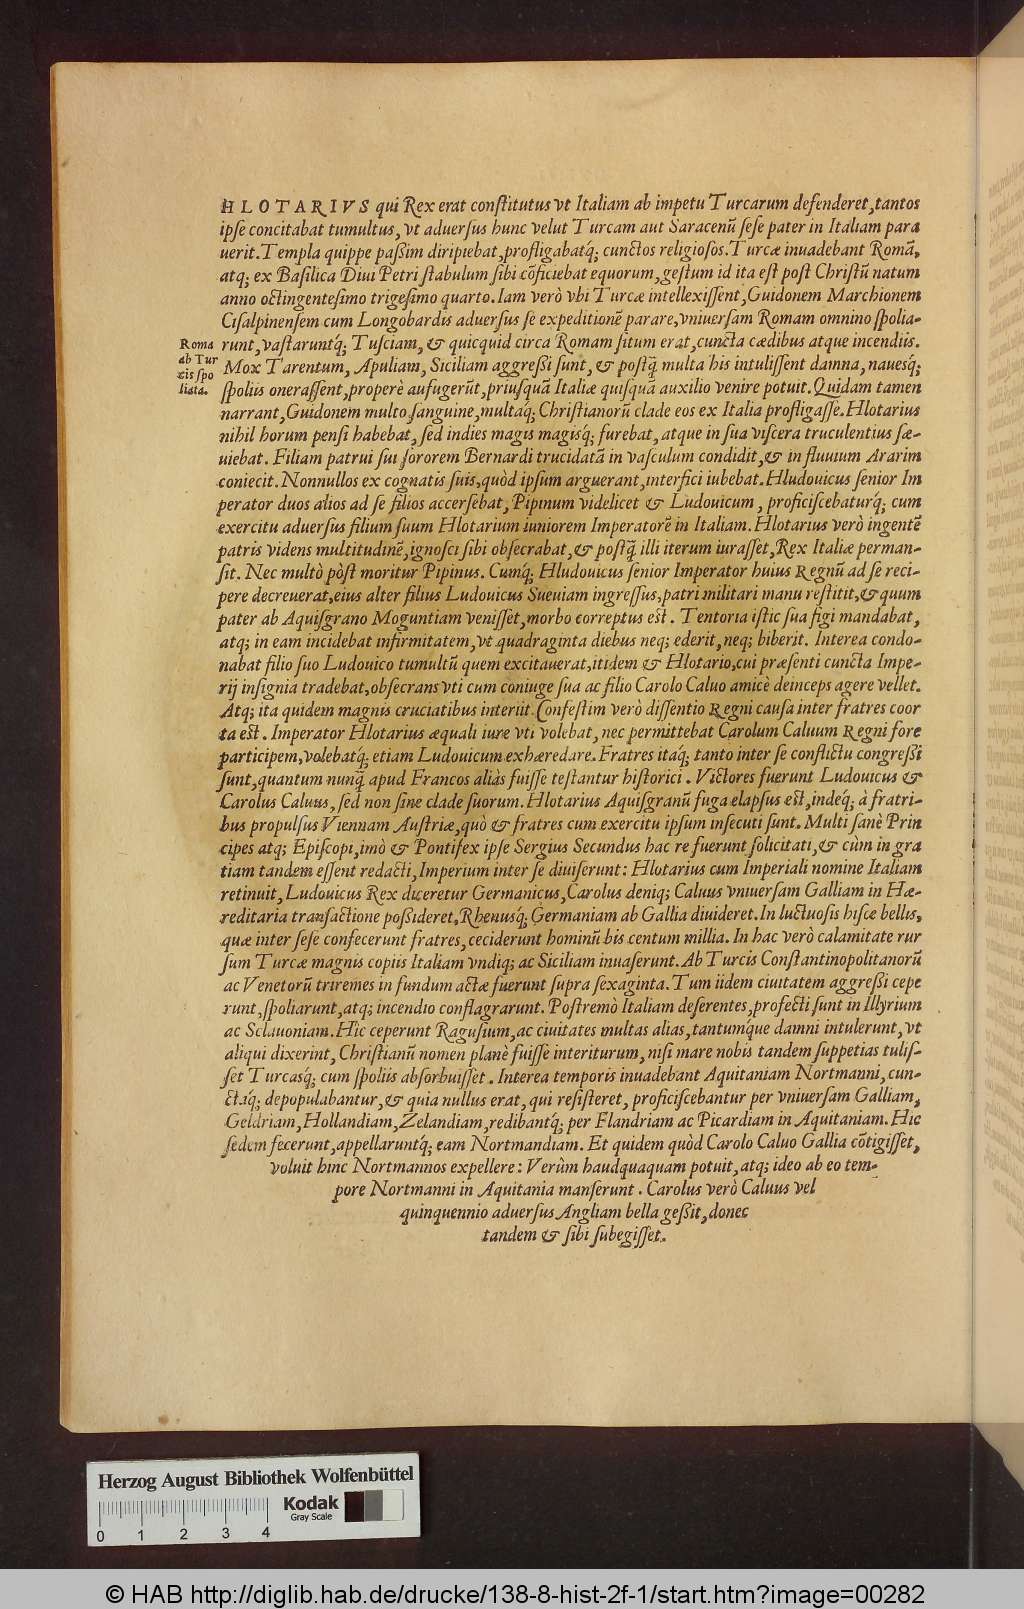 HLOTARIVS qui Rex erat conſtitutus vt Italiam ab impetu Turcarum defenderet, tantos
ipſe concitabat tumultus, vt aduerſus hunc velut Turcam aut Saracenũ ſeſe pater in Italiam para
uerit. Templa quippe paßim diripiebat, profligabatq́; cunctos religioſos. Turcæ inuadebant Romã,
atq; ex Baſilica Diui Petri ſtabulum ſibi cõficiebat equorum, geſtum id ita eſt poſt Chriſtũ natum
anno octingenteſimo trigeſimo quarto. Iam verò vbi Turcæ intellexiſſent, Guidonem Marchionem
Ciſalpinenſem cum Longobardis aduerſus ſe expeditionẽ parare, vniuerſam Romam omnino ſpolia-
Roma
ab Tur
cis ſpo
liata.
runt, vaſtaruntq́; Tuſciam, & quicquid circa Romam ſitum erat, cuncta cædibus atque incendiis.
Mox Tarentum, Apuliam, Siciliam aggreßi ſunt, & poſtq̃ multa his intuliſſent damna, naueſq́;
ſpoliis oneraſſent, properè aufugerũt, priuſquã Italiæ quiſquã auxilio venire potuit. Quidam tamen
narrant, Guidonem multo ſanguine, multaq́; Chriſtianorũ clade eos ex Italia profligaſſe. Hlotarius
nihil horum penſi habebat, ſed indies magis magiſq́; furebat, atque in ſua viſcera truculentius ſæ-
uiebat. Filiam patrui ſui ſororem Bernardi trucidatã in vaſculum condidit, & in fluuium Ararim
coniecit. Nonnullos ex cognatis ſuis, quòd ipſum arguerant, interfici iubebat. Hludouicus ſenior Im
perator duos alios ad ſe filios accerſebat, Pipinum videlicet & Ludouicum, proficiſcebaturq́; cum
exercitu aduerſus filium ſuum Hlotarium iuniorem Imperatorẽ in Italiam. Hlotarius verò ingentẽ
patris videns multitudinẽ, ignoſci ſibi obſecrabat, & poſtq̃ illi iterum iuraſſet, Rex Italiæ perman-
ſit. Nec multò pòſt moritur Pipinus. Cumq́; Hludouicus ſenior Imperator huius Regnũ ad ſe reci-
pere decreuerat, eius alter filius Ludouicus Sueuiam ingreſſus, patri militari manu reſtitit, & quum
pater ab Aquiſgrano Moguntiam veniſſet, morbo correptus eſt. Tentoria iſtic ſua figi mandabat,
atq; in eam incidebat infirmitatem, vt quadraginta diebus neq; ederit, neq; biberit. Interea condo-
nabat filio ſuo Ludouico tumultũ quem excitauerat, itidem & Hlotario, cui præſenti cuncta Impe-
rij inſignia tradebat, obſecrans vti cum coniuge ſua ac filio Carolo Caluo amicè deinceps agere vellet.
Atq; ita quidem magnis cruciatibus interiit. Confeſtim verò diſſentio Regni cauſa inter fratres coor
ta eſt. Imperator Hlotarius æquali iure vti volebat, nec permittebat Carolum Caluum Regni fore
participem, volebatq́; etiam Ludouicum exhæredare. Fratres itaq́; tanto inter ſe conflictu congreßi
ſunt, quantum nunq̃ apud Francos aliàs fuiſſe teſtantur hiſtorici. Victores fuerunt Ludouicus &
Carolus Caluus, ſed non ſine clade ſuorum. Hlotarius Aquiſgranũ fuga elapſus eſt, indeq́; à fratri-
bus propulſus Viennam Auſtriæ, quò & fratres cum exercitu ipſum inſecuti ſunt. Multi ſanè Prin
cipes atq; Epiſcopi, imò & Pontifex ipſe Sergius Secundus hac re fuerunt ſolicitati, & cùm in gra
tiam tandem eſſent redacti, Imperium inter ſe diuiſerunt: Hlotarius cum Imperiali nomine Italiam
retinuit, Ludouicus Rex diceretur Germanicus, Carolus deniq; Caluus vniuerſam Galliam in Hæ-
reditaria tranſactione poßideret, Rhenuſq́; Germaniam ab Gallia diuideret. In luctuoſis hiſce bellis,
quæ inter ſeſe confecerunt fratres, ceciderunt hominũ bis centum millia. In hac verò calamitate rur
ſum Turcæ magnis copiis Italiam vndiq; ac Siciliam inuaſerunt. Ab Turcis Conſtantinopolitanorũ
ac Venetorũ triremes in fundum actæ fuerunt ſupra ſexaginta. Tum iidem ciuitatem aggreßi cepe
runt, ſpoliarunt, atq; incendio conflagrarunt. Poſtremò Italiam deſerentes, profecti ſunt in Illyrium
ac Sclauoniam. Hic ceperunt Raguſium, ac ciuitates multas alias, tantumq́ue damni intulerunt, vt
aliqui dixerint, Chriſtianũ nomen planè fuiſſe interiturum, niſi mare nobis tandem ſuppetias tuliſ-
ſet Turcasq́; cum ſpoliis abſorbuiſſet. Interea temporis inuadebant Aquitaniam Nortmanni, cun-
ctaq́; depopulabantur, & quia nullus erat, qui reſiſteret, proficiſcebantur per vniuerſam Galliam,
Geldriam, Hollandiam, Zelandiam, redibantq́; per Flandriam ac Picardiam in Aquitaniam. Hic
ſedem fecerunt, appellaruntq́; eam Nortmandiam. Et quidem quòd Carolo Caluo Gallia cõtigiſſet,
voluit hinc Nortmannos expellere: Verùm haudquaquam potuit, atq; ideo ab eo tem-
pore Nortmanni in Aquitania manſerunt. Carolus verò Caluus vel
quinquennio aduerſus Angliam bella geßit, donec
tandem & ſibi ſubegiſſet.
Herzog August Bibliothek Wolfenbüttel
Kodak
Gray Scale
0 1 2 3 4
© HAB http://diglib.hab.de/drucke/138-8-hist-2f-1/start.htm?image=00282